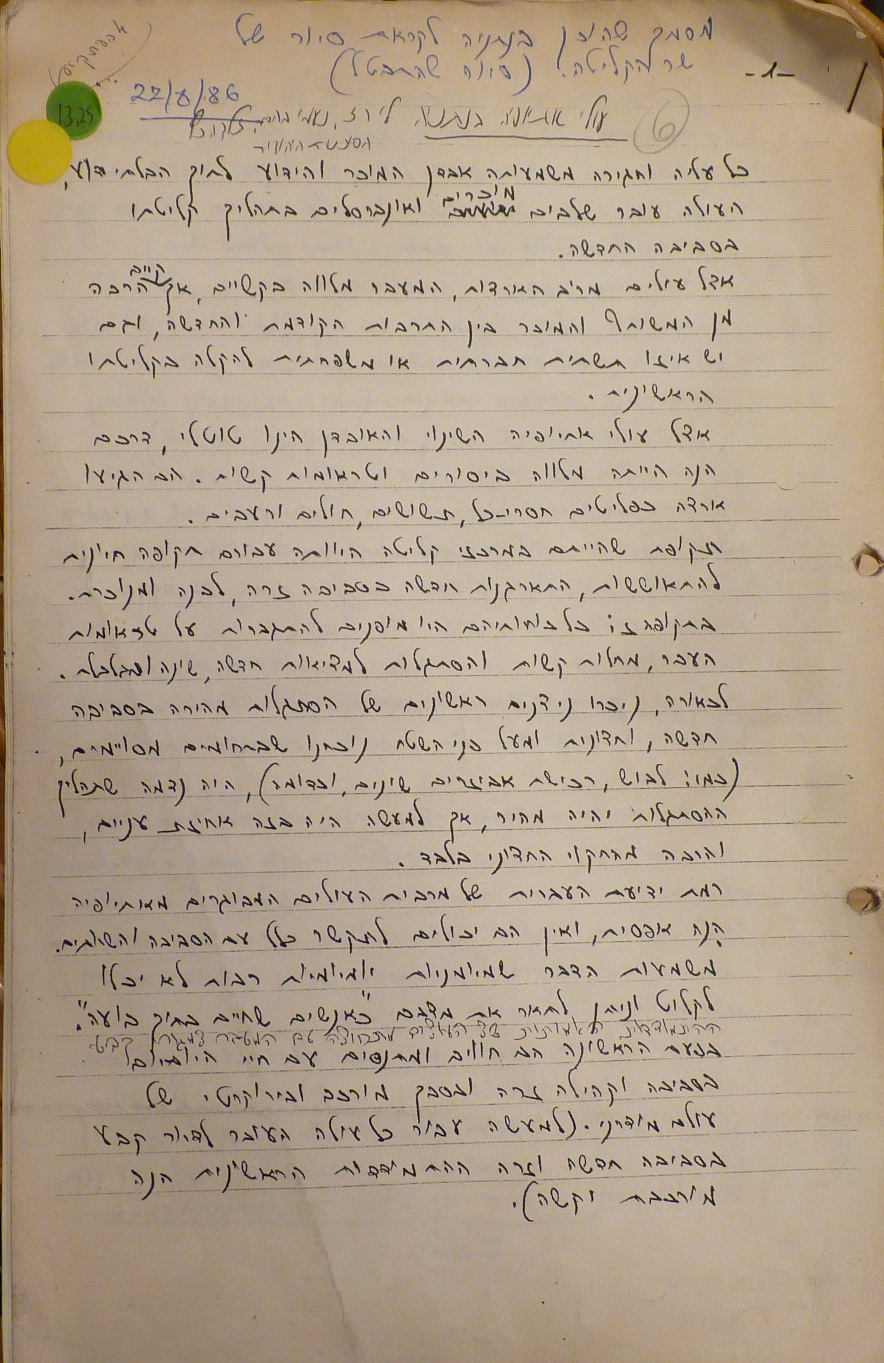 מסמך שהוכן בנתניה לקראת סיור של
שר הקליטה. (סיור שהתבטל)
-1-
22/8/86
13.25
עולי אתיופיה בנתניה
6
כל עליה והגירה משמעותה אבדן המוכר והידוע לתוך הבלתי ידוע,
העולה עובר שלבים מוכרים ואוניברסלים בתהליך קליטתו
בסביבה החדשה.
אצל עולים מרוב הארצות, המעבר מלווה בקשיים, אך קיים הרבה
מן המשותף והמוכר בין התרבות הקודמת והחדשה, וגם
יש איזו תשתית חברתית או משפחתית להקלה בקליטתו
הראשונית.
אצל עולי אתיופיה השינוי והאובדן הינו טוטלי, דרכם
הנה הייתה מלווה ביסורים וטראומות קשות. הם הגיעו
ארצה כפליטים חסרי-כל, תשושים, חולים ורעבים.
תקופת שהייתם במרכזי קליטה היוותה עבורם תקופה חיונית
להתאוששות, התארגנות חדשה בסביבה זרה, לבנה ומנוכרת.
בתקופה זו כל כוחותיהם היו מופנים להתגברות על טראומות
העבר, מחלות קשות והסתגלות למציאות חדשה, שונה ומבלבלת.
לכאורה, ניכרו ניצנים ראשונים של הסתגלות מהירה בסביבה
חדשה, וחצונית ומעל פני השטח נוכחנו שבתחומים מסויימים,
(כמו: לבוש, רכישת אביזרים שונים, וכדומה), היה נדמה שתהליך
ההסתגלות יהיה מהיר, אך למעשה היה בזה אחיזת עניים,
והרבה מהחקוי החצוני בלבד.
רמת ידיעת העברית של מרבית העולים המבוגרים מאתיופיה
הנה אפסית, ואין הם יכולים לתקשר כלל עם הסביבה והשרותים.
משמעות הדבר שמיומנויות יומיומיות רבות לא יכלו
לקלוט וניתן לתאר את מצבם "כאנשים שחיים בתוך בועה".
ההתמודדות האמיתית של העולים מתחוללת עם המעבר למגורי קבע
בפעם הראשונה הם חווים ומתנסים עם חיי היומיום
בסביבה וקהילה זרה ובסבך מורכב ובירוקרטי של
עולם מודרני. (למעשה עבור כל עולה המעבר לדיור קבע
בסביבה חדשה וזרה ההתמודדות הראשונית הנה
מורכבת וקשה).